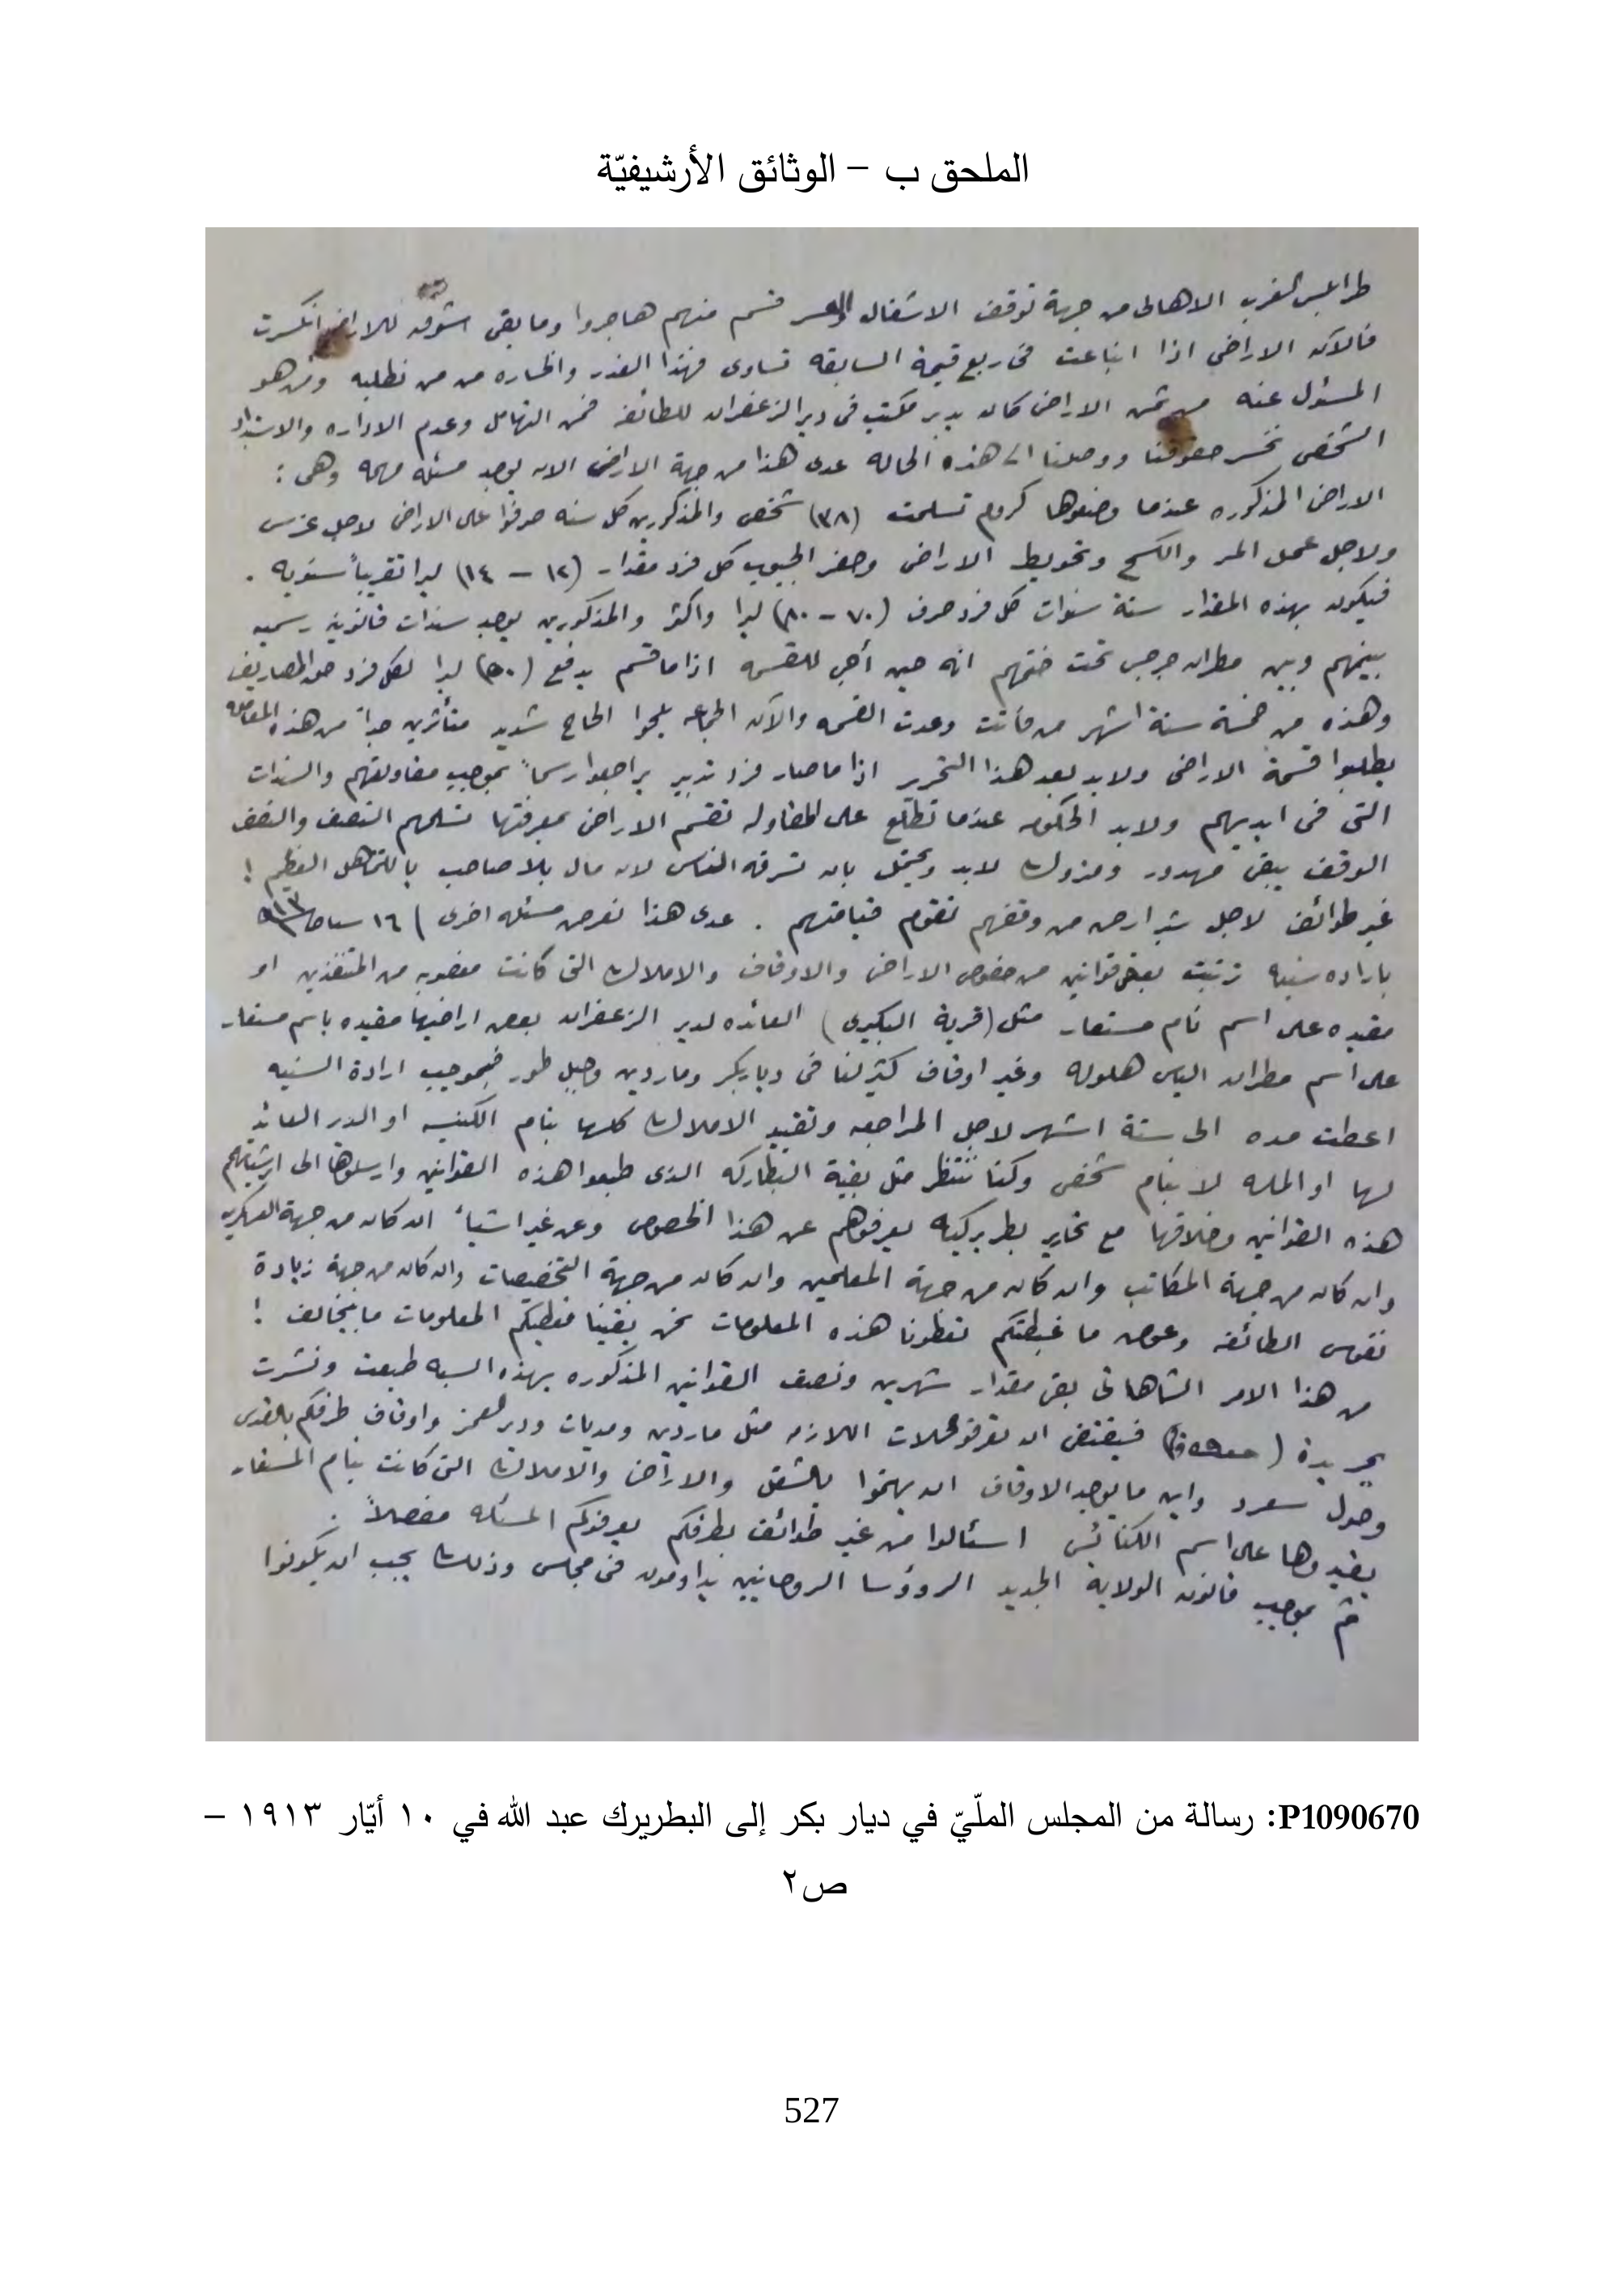 الملحق ب – الوثائق الأرشيفيّة
طرابلس الغرب الاهالى من جهة توقف الاشغال قسم منهم هاجروا وما بقى للاراضى انكسرت
فالآن الاراضى اذا انباعت فى ربع قيمة السابقه تساوى فهذا الغدر والخساره من من نطلبه ومن هو
المسئول عنه من ثمن الاراضى كان يدير مكتب فى دير الزعفران للطائفه فمن التهامل وعدم الاداره والاستبداد
الشخصى نخسر حقوقنا ووصلنا الى هذه الحاله عدى هذا من جهة الاراضى الان يوجد مسئله مهمه وهى :
الاراضى المذكوره عندما وضعوها كروم تسلمت (٣٨) شخص والمذكورين كل سنه صرفوا على الاراضى لاجل غرس
ولاجل عمل المر والكسح وتحويط الاراضى وحفر الجبوب كل فرد مقدار (١٢ – ١٤) ليرا تقريباً سنويه .
فيكون بهذه المقدار ستة سنوات كل فرد صرف (٧٠ – ٨٠) ليرا واكثر والمذكورين يوجد سندات قانونية رسميه
بينهم وبين مطران جرجس تحت ختمهم انه حين أجى للقسمه اذا ما قسم يدفع ليرا لكل فرد حق المصاريف
وهذه من خمسة ستة اشهر من فاتت وعدت القسمه والآن الجماعه يلحوا الحاح شديد متأثرين جداً من هذه المعامله
يطلبوا قسمة الاراضى ولابد بعد هذا التحرير اذا ما صار فرد تدبير يراجعوا رسماً بموجب مقاولتهم والسندات
التى فى ايديهم ولابد الحكومه عندما تطلع على المقاوله تقسم الاراضى بمعرفتها تسلمهم النصف والنصف
الوقف يبقى مهدور ومتروك لابد ويحتمل بان تسرقه الناس لان مال بلا صاحب بالتماهل العظيم !
غير طوائف لاجل شبر ارض من وقفهم تقوم قيامتهم . عدى هذا نعرض مسئله اخرى ) ١٦
باراده سنيه ترتبت بعض قوانين من خصوص الاراضى والاوقاف والاملاك التى كانت مغصوبه من المتنفذين او
مقيده على اسم نام مستعار مثل (قرية البكيرى) العائده لدير الزعفران بعض اراضيها مقيده باسم مستعار
على اسم مطران الياس هلوله وغير اوقاف كثير لنا فى ديار بكر وماردين وجبل طور فبموجب ارادة السنيه
اعطت مده الى ستة اشهر لاجل المراجعه وتقيد الاملاك كلها بنام الكنيسه او الدير العائد
لها او المله لا بنام شخص وكنا ننتظر مثل بقية البطاركه الذى طبعوا هذه القوانين وارسلوها الى ابرشياتهم
هذه القوانين وخلافها مع تحارير بطريركيه يعرفوهم عن هذا الخصوص وعن غير اشيأ ان كان من جهة العسكريه
وان كان من جهة المكاتب وان كان من جهة المعلمين وان كان من جهة التخصيصات وان كان من جهة زيادة
نفوس الطائفه وعوض ما غبطتكم تعطونا هذه المعلومات نحن بقينا نعطيكم المعلومات ما يخالف !
من هذا الامر الشاهانى بقى مقدار شهرين ونصف القوانين المذكوره بهذه السنه طبعت ونشرت
بجريدة فيقتضى ان تعرفو محلات اللازمه مثل ماردين ومديات ودير العمر واوقاف طرفكم بالقدس
وحول سعرد واين ما يوجد الاوقاف ان يهتموا بالشغل والاراضى والاملاك التى كانت بنام المستعار
يقيدوها على اسم الكنائس اسئالوا من غير طوائف بطرفكم يعرفوكم المسئله مفصلاً .
ثم بموجب قانون الولاية الجديد الرؤوسا الروحانيين يداومون فى مجلس وذلك يجب ان يكونوا
P1090670: رسالة من المجلس الملّيّ في ديار بكر إلى البطريرك عبد الله في ١٠ أيّار ١٩١٣ –
ص٢
527